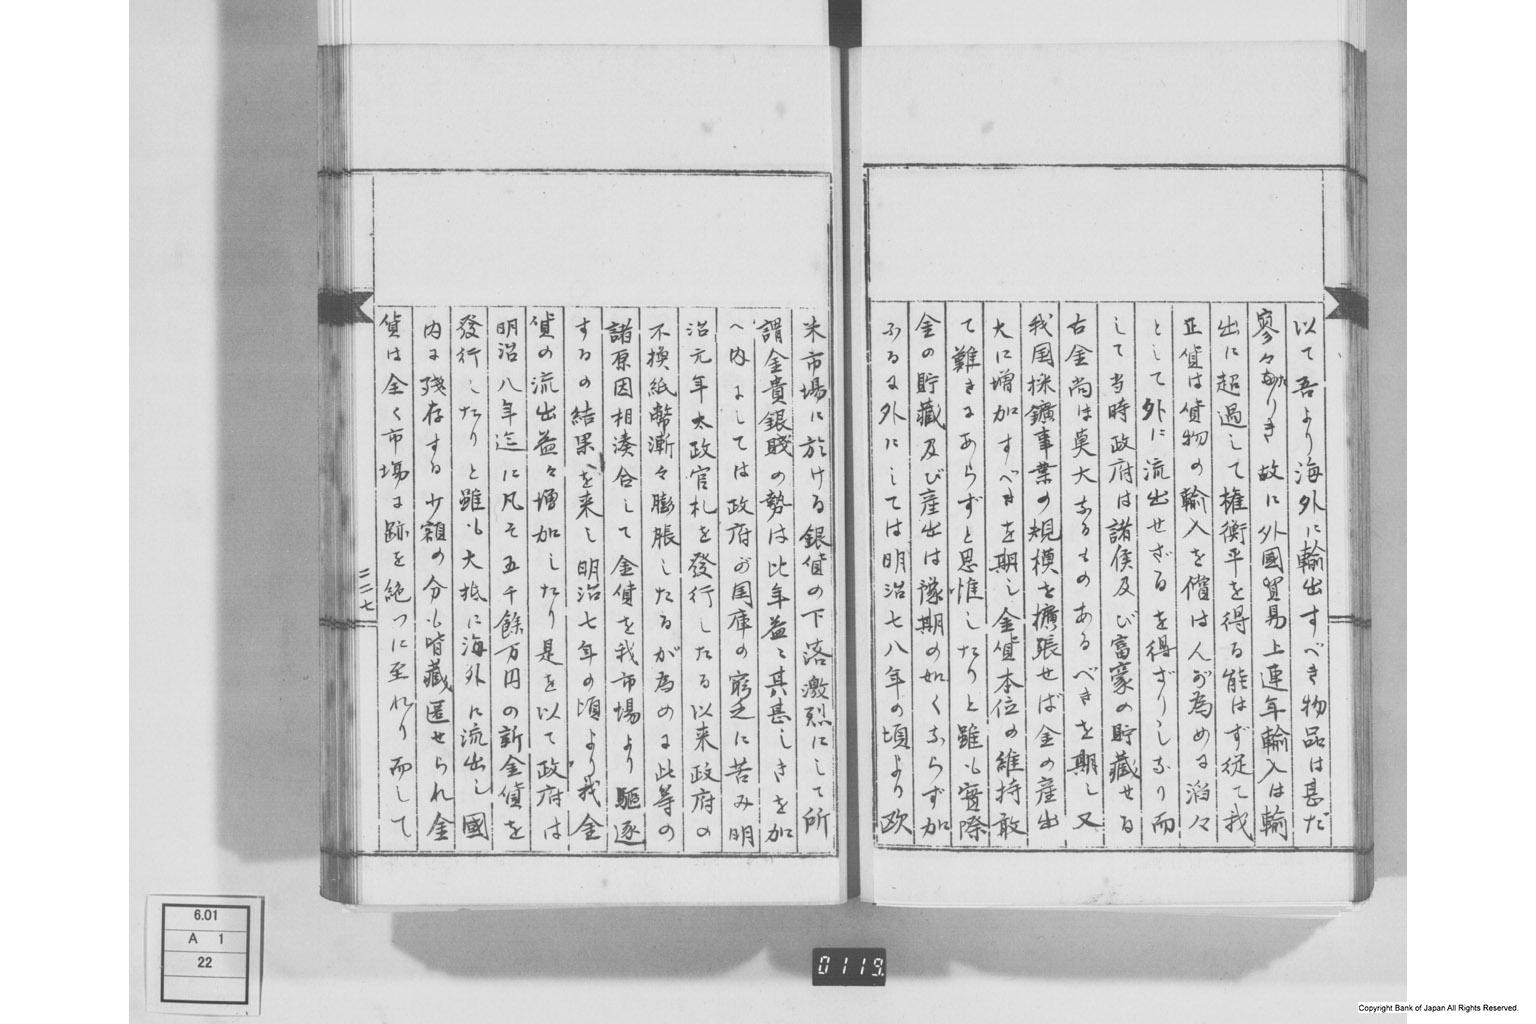 以て吾より海外に輸出すべき物品は甚だ
寥々なりき故に外國貿易上連年輸入は輸
出に超過して権衡平を得る能はず従て我
正貨は貨物の輸入を償はんが為め滔々
として外に流出せざるを得ざりしなり而
して当時政府は諸侯及び富豪の貯藏せる
古金尚ほ莫大なるものあるべきを期し又
我国採鑛事業の規模を擴張せば金の産出
大に増加すべきを期し金貨本位の維持敢
て難きにあらずと思惟したりと雖も實際
金の貯藏及び産出は豫期の如くならず加
ふるに外にしては明治七八年の頃より欧
米市場に於ける銀貨の下落激烈にして所
謂金貴銀賤の勢は比年益々其甚しきを加
へ内にしては政府が国庫の窮乏に苦み明
治元年太政官札を發行したる以来政府の
不換紙幣漸々膨脹したるが為めに此等の
諸原因相湊合して金貨を我市場より驅逐
するの結果を来し明治七年の頃より我金
貨の流出益々増加したり是を以て政府は
明治八年迄に凡そ五千餘万円の新金貨を
發行したりと雖も大抵に海外に流出し國
内に殘存する少額の分も皆藏匿せられ金
貨は全く市場に跡を絶つに至れり而して
二二七
6.01
A 1
22
0119.
Copyright Bank of Japan All Rights Reserved.